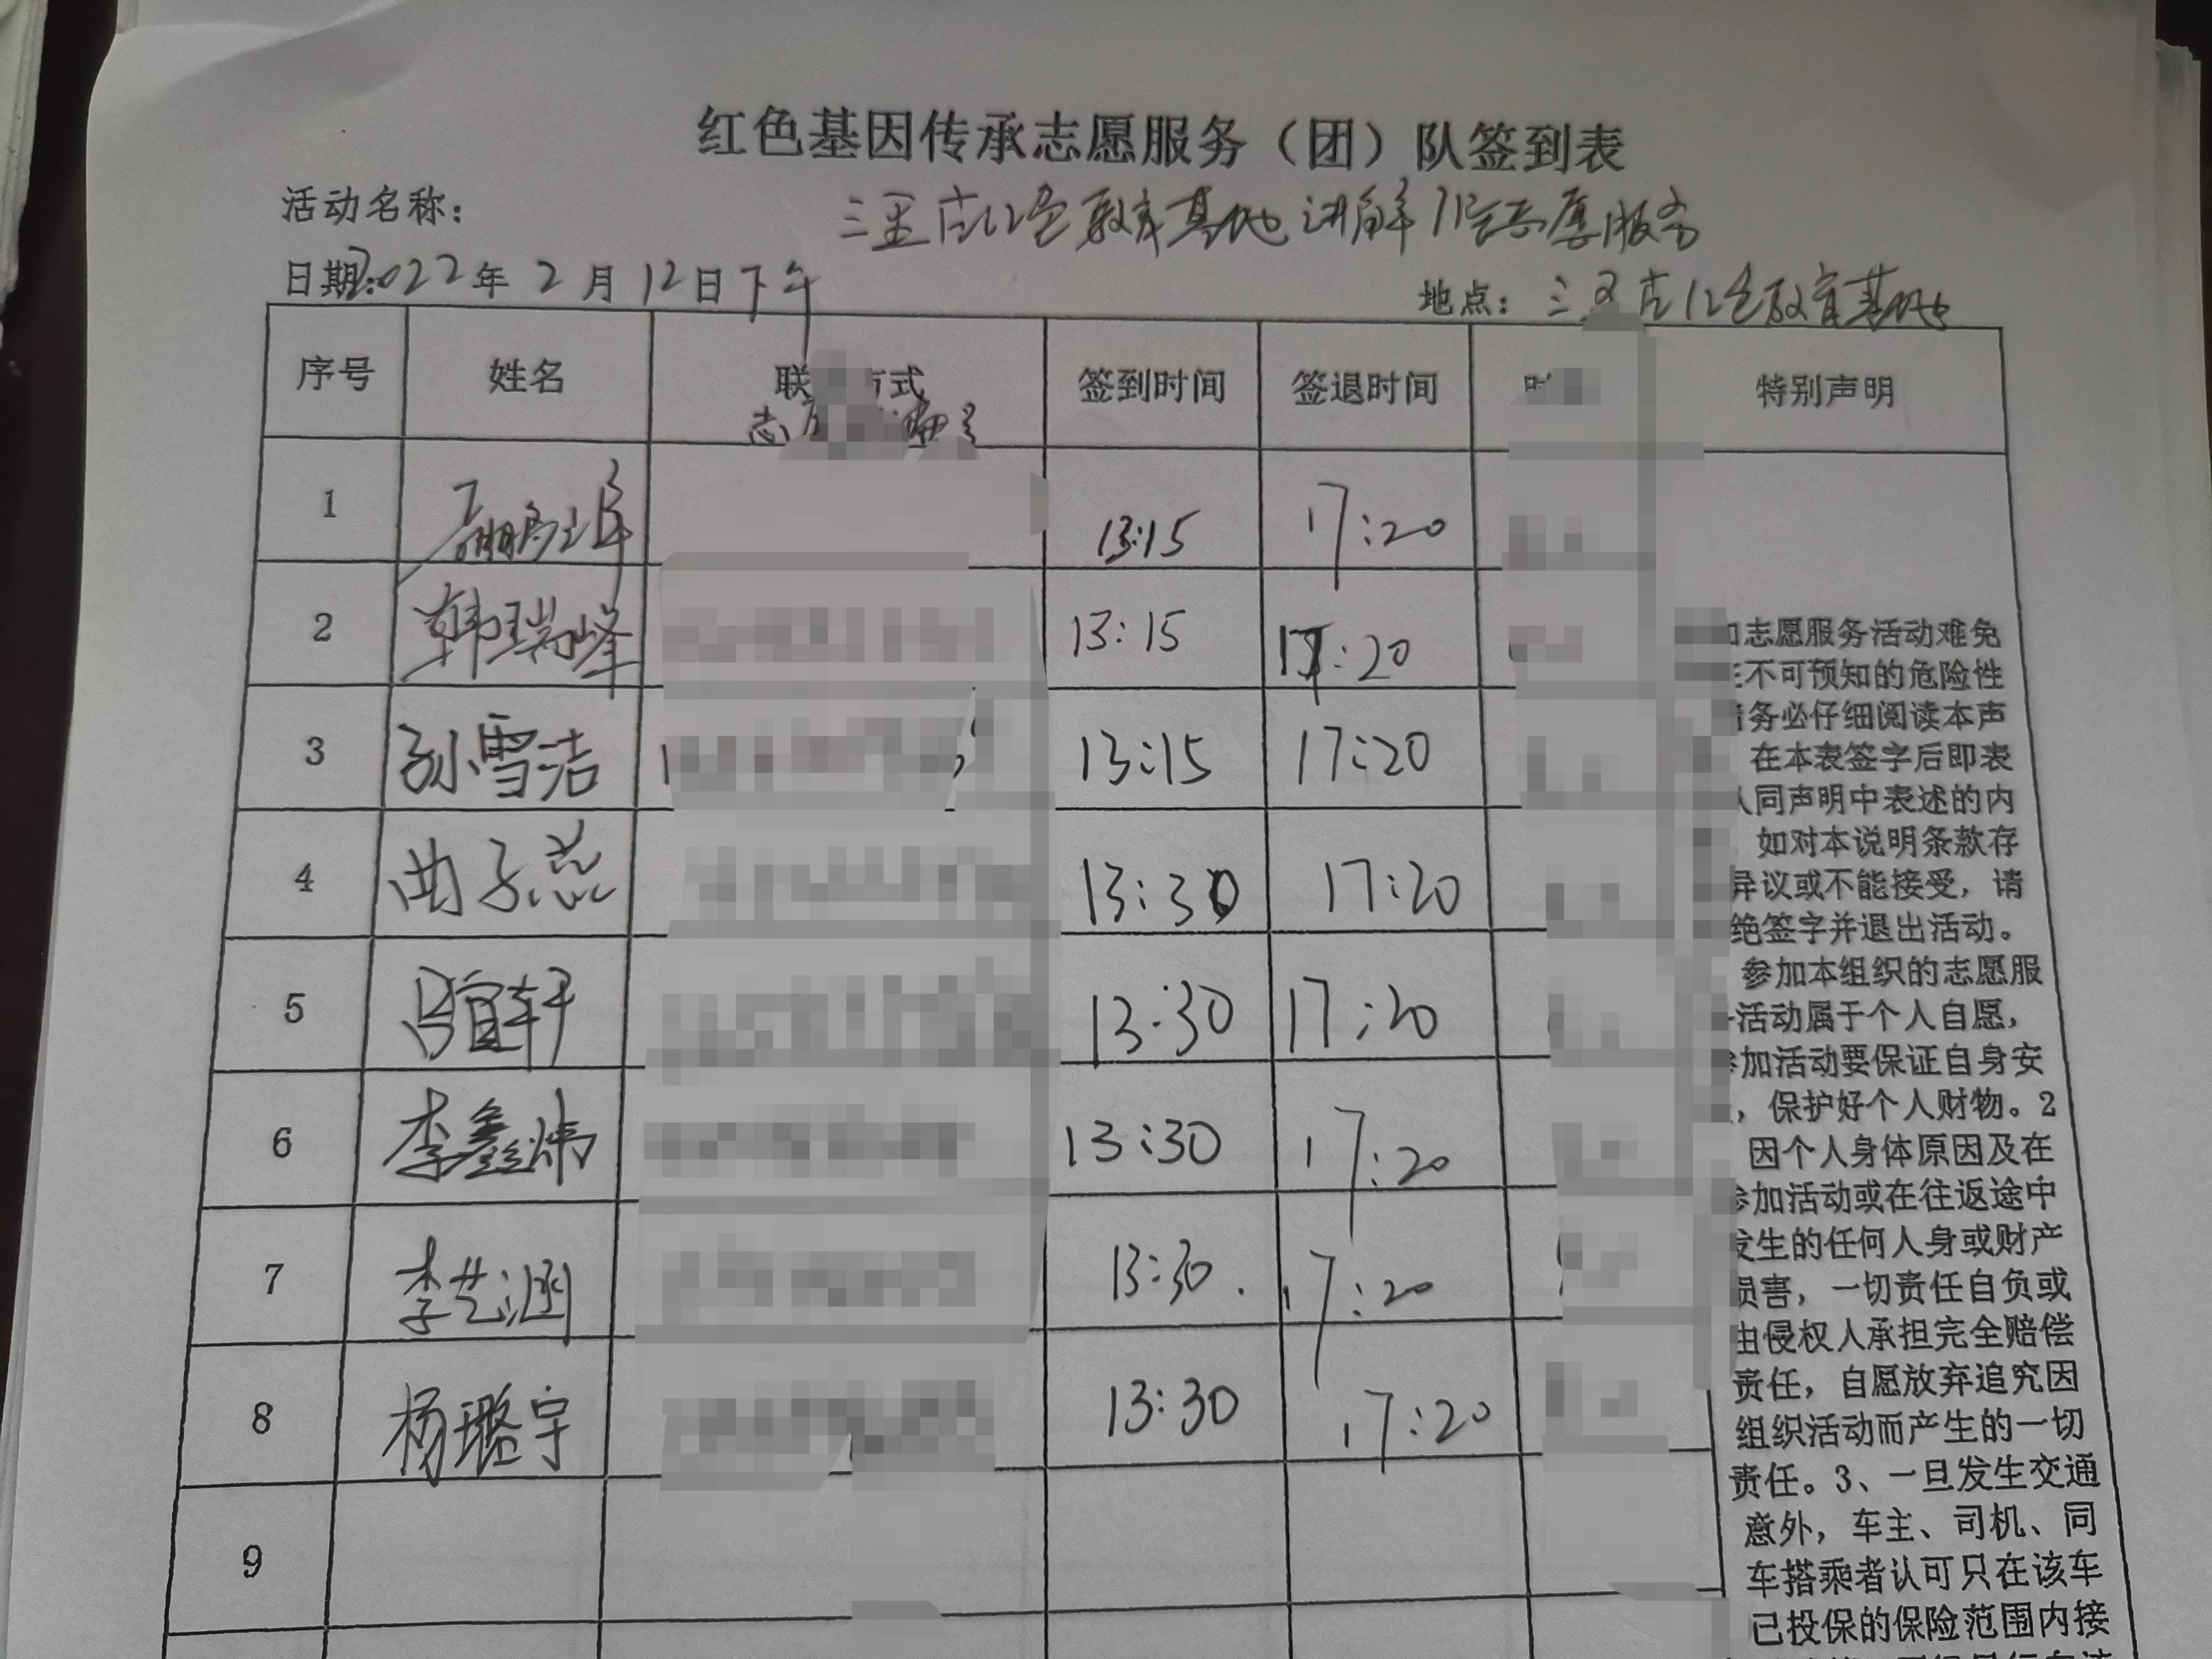 红色基因传承志愿服务（团）队签到表
活动名称： 三里店红色教育基地讲解服务
日期：2022年2月12日下午 地点：三里店红色教育基地
序号 姓名 联 方式 签到时间 签退时间 特别声明
志
1 13:15 17:20
2 韩瑞峰 13:15 17:20
3 孙雪洁 13:15 17:20
4 曲子蕊 13:30 17:20
5 吕宜轩 13:30 17:20
6 李鑫炜 13:30 17:20
7 李艺涵 13:30 17:20
8 杨璐宇 13:30 17:20
9
志愿服务活动难免
不可预知的危险性
务必仔细阅读本声
在本表签字后即表
同声明中表述的内
如对本说明条款存
异议或不能接受，请
绝签字并退出活动。
参加本组织的志愿服
活动属于个人自愿，
加活动要保证自身安
，保护好个人财物。2
因个人身体原因及在
参加活动或在往返途中
发生的任何人身或财产
损害，一切责任自负或
由侵权人承担完全赔偿
责任，自愿放弃追究因
组织活动而产生的一切
责任。3、一旦发生交通
意外，车主、司机、同
车搭乘者认可只在该车
已投保的保险范围内接